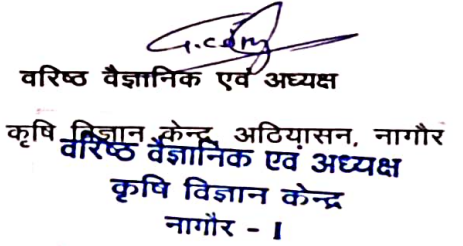 वरिष्ठ वैज्ञानिक एवं अध्यक्ष
कृषि विज्ञान केन्द्र, अठियासन, नागौर
वरिष्ठ वैज्ञानिक एवं अध्यक्ष
कृषि विज्ञान केन्द्र
नागौर - I